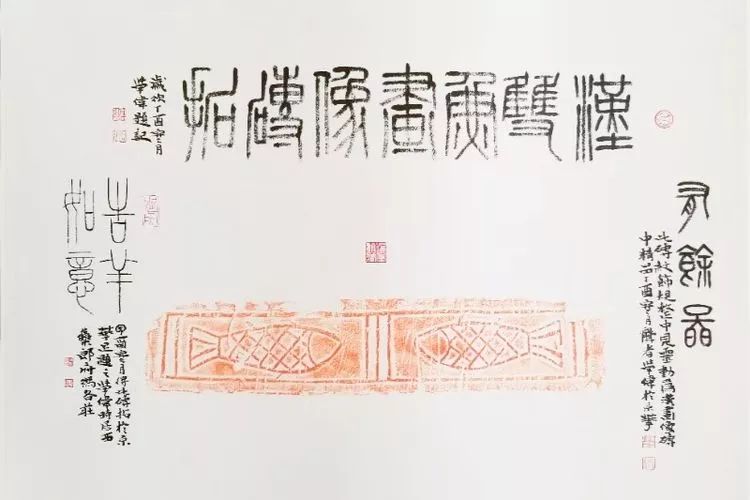 漢雙魚畫像磚拓
歲次丁酉月
華偉題記
有餘
此磚紋飾規整中見靈動為漢畫像磚
中精品丁酉月華偉於京華
吉羊
如意
月得此磚拓於京
華並題之華偉時居西
郎府湯各莊